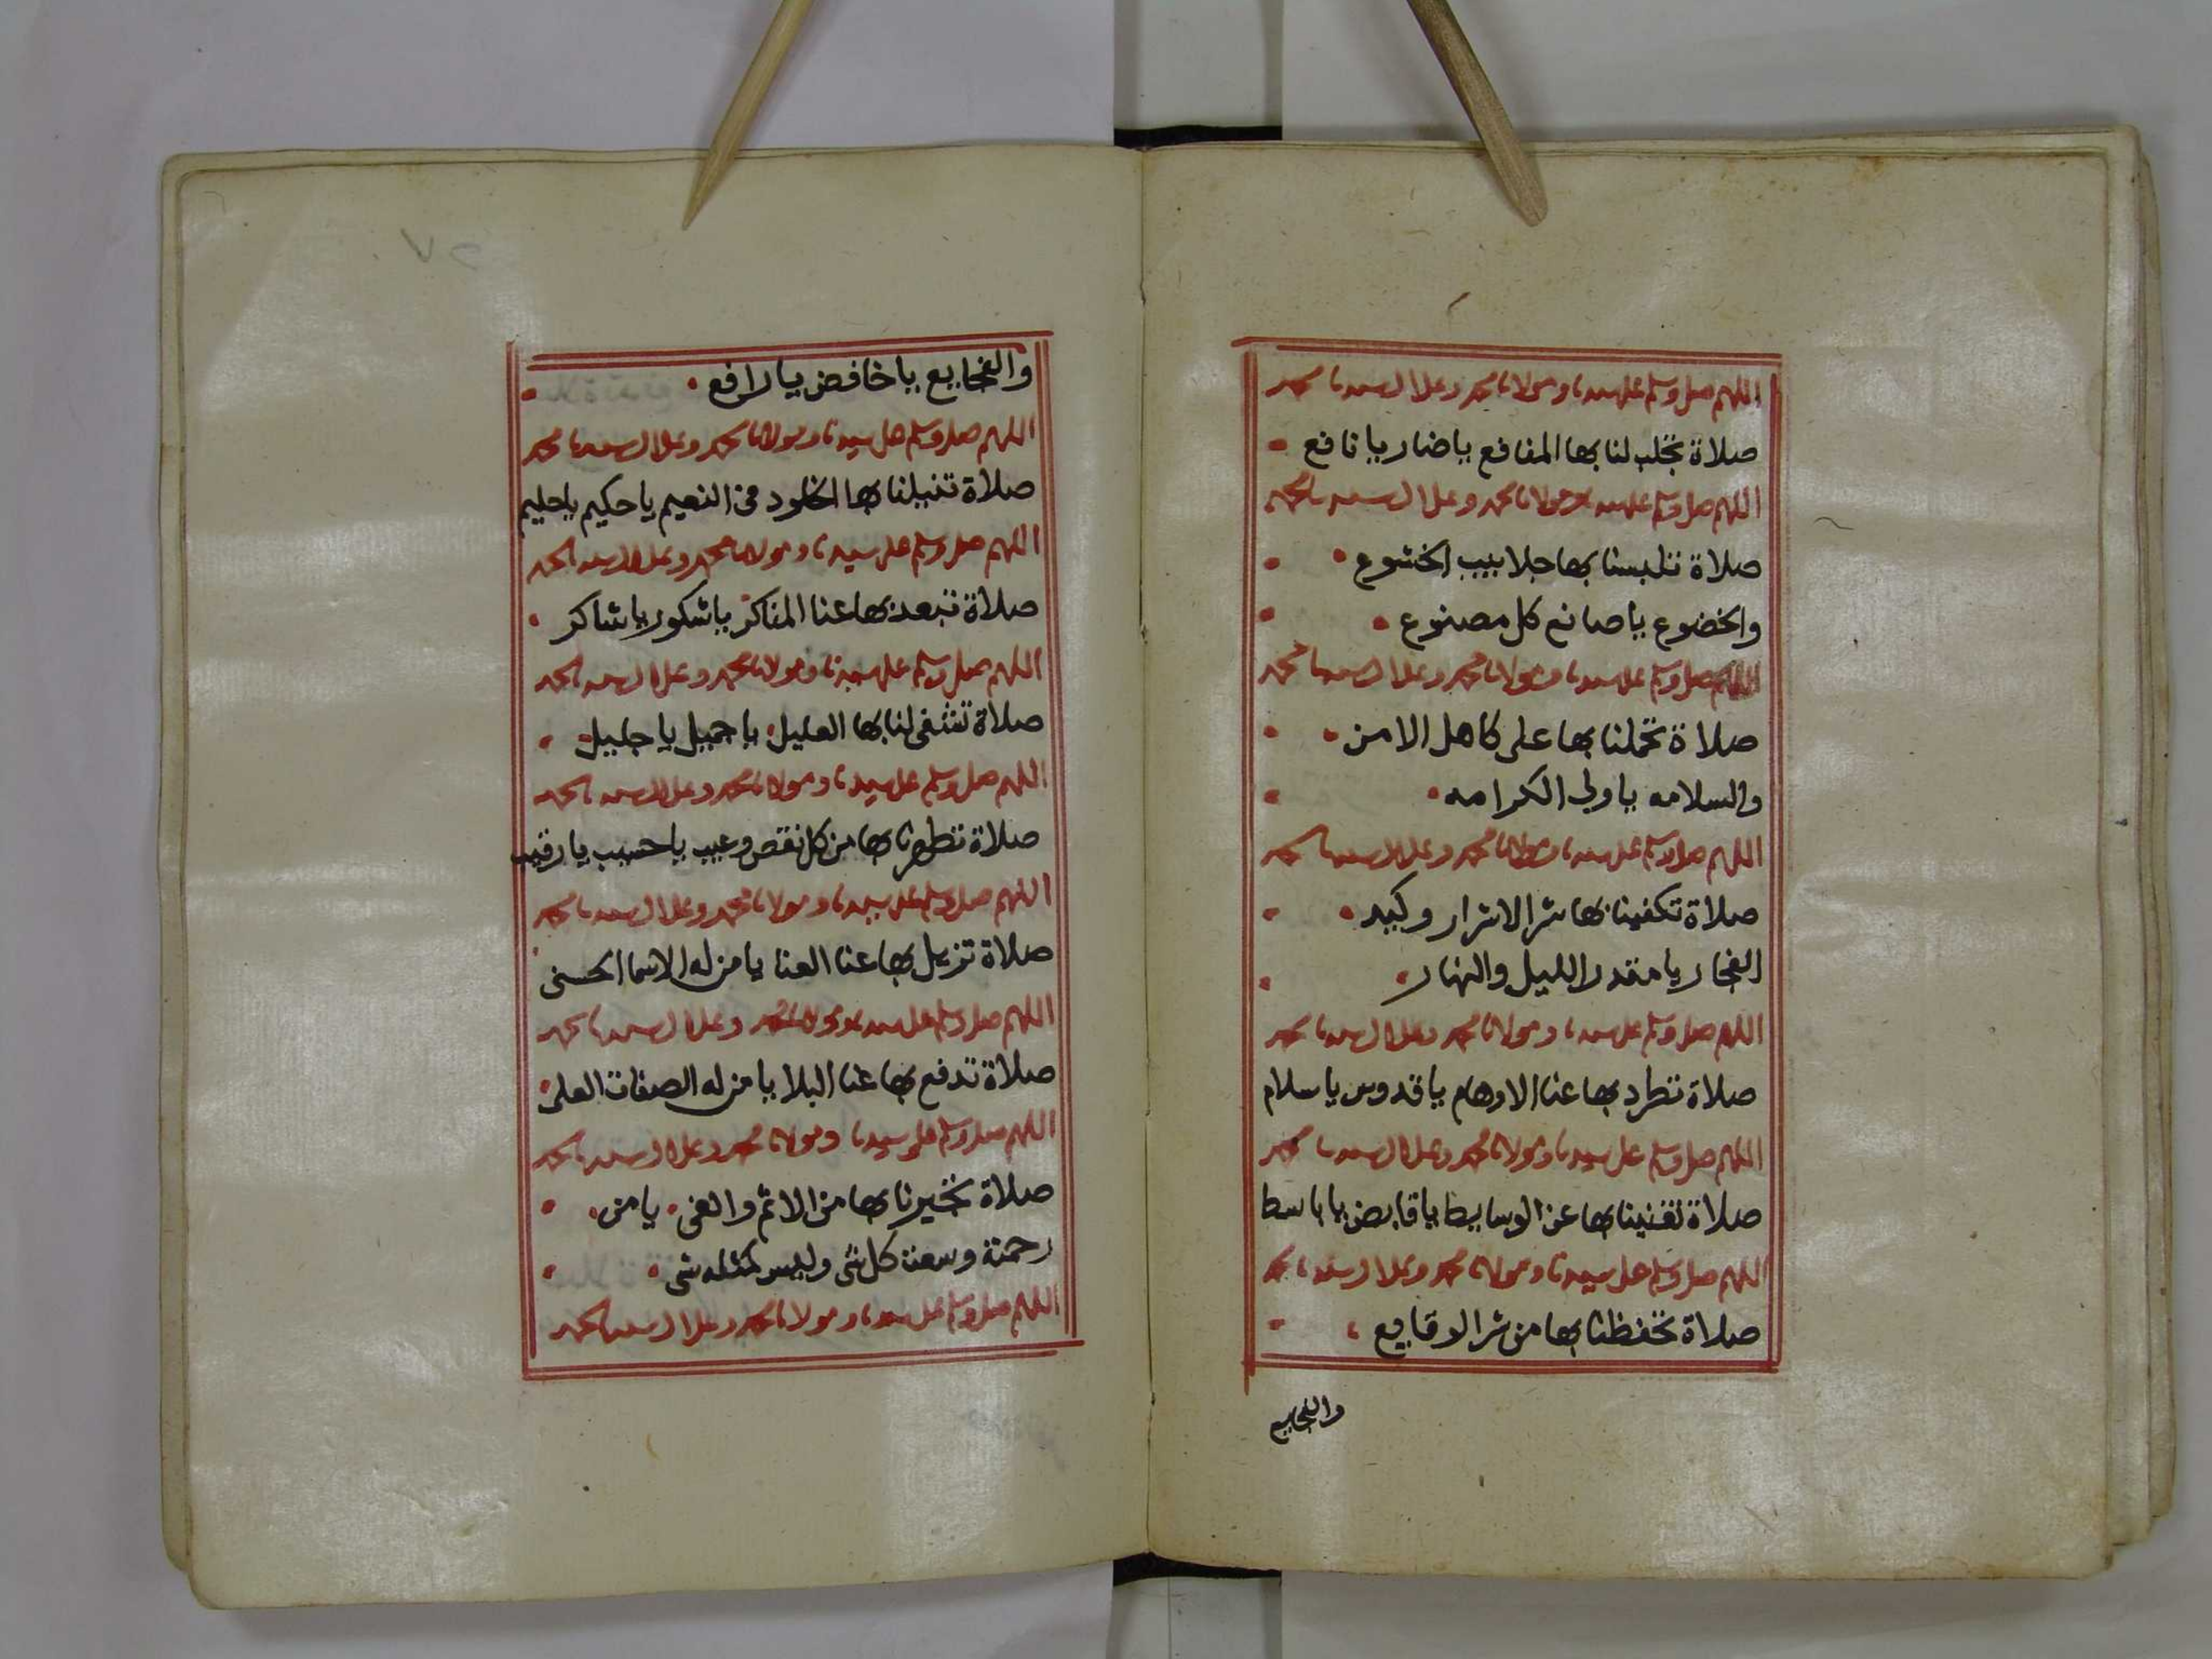 اللهم صل وسلم على سيدنا ومولانا محمد وعلى ال سيدنا محمد
صلاة تجلب لنا بها المنافع ياضار يا نافع
اللهم صل وسلم على سيدنا ومولانا محمد وعلى ال سيدنا محمد
صلاة تلبسنا بها جلابيب الخشوع
والخضوع يا صانع كل مصنوع
اللهم صل وسلم على سيدنا ومولانا محمد وعلى ال سيدنا محمد
صلاة تحملنا بها على كاهل الامن
والسلامه يا ولى الكرامه
اللهم صل وسلم على سيدنا ومولانا محمد وعلى ال سيدنا محمد
صلاة تكفينا بها شر الاشرار وكيد
الفجار يا مقدر الليل والنهار
اللهم صل وسلم على سيدنا ومولانا محمد وعلى ال سيدنا محمد
صلاة تطرد بها عنا الاوهام يا قدوس يا سلام
اللهم صل وسلم على سيدنا ومولانا محمد وعلى ال سيدنا محمد
صلاة تغنينا بها عن الوسايط يا قابض يا باسط
اللهم صل وسلم على سيدنا ومولانا محمد وعلى ال سيدنا محمد
صلاة تحفظنا بها من شر الوقايع
والفجايع
والفجايع يا خافض يا رافع
اللهم صل وسلم على سيدنا ومولانا محمد وعلى ال سيدنا محمد
صلاة تنيلنا بها الخلود فى النعيم يا حكيم يا حليم
اللهم صل وسلم على سيدنا ومولانا محمد وعلى ال سيدنا محمد
صلاة تبعد بها عنا المناكر يا شكور يا شاكر
اللهم صل وسلم على سيدنا ومولانا محمد وعلى ال سيدنا محمد
صلاة تشفى لنا بها العليل يا جميل يا جليل
اللهم صل وسلم على سيدنا ومولانا محمد وعلى ال سيدنا محمد
صلاة تطهرنا بها من كل نقص وعيب يا حسيب يا رقيب
اللهم صل وسلم على سيدنا ومولانا محمد وعلى ال سيدنا محمد
صلاة تزيل بها عنا العنا يا من له الاسما الحسنى
اللهم صل وسلم على سيدنا ومولانا محمد وعلى ال سيدنا محمد
صلاة تدفع بها عنا البلا يا من له الصفات العلى
اللهم صل وسلم على سيدنا ومولانا محمد وعلى ال سيدنا محمد
صلاة تجيرنا بها من الاثم والغى يا من
رحمتة وسعت كل شى وليس كمثله شى
اللهم صل وسلم على سيدنا ومولانا محمد وعلى ال سيدنا محمد